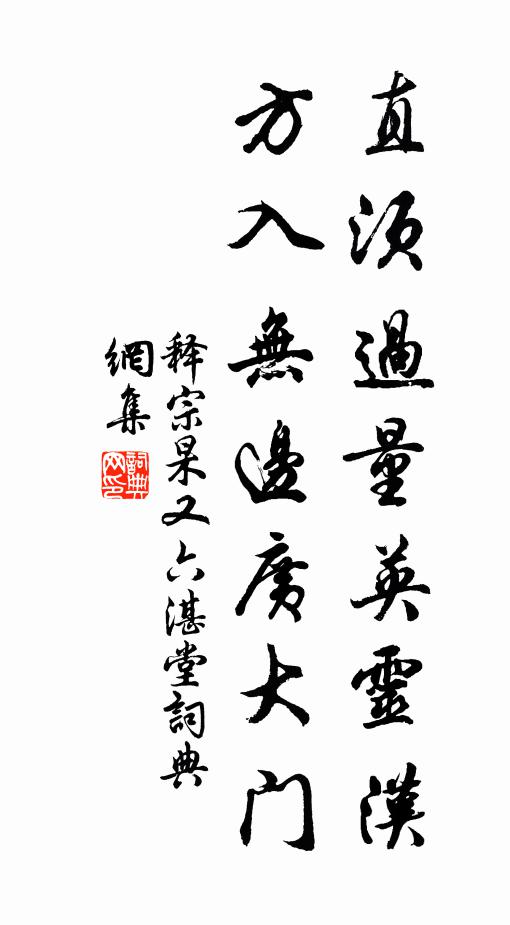 直須過量英靈漢
方入無邊廣大门
释宗杲又六湛堂詞典
網集
詞典
网印